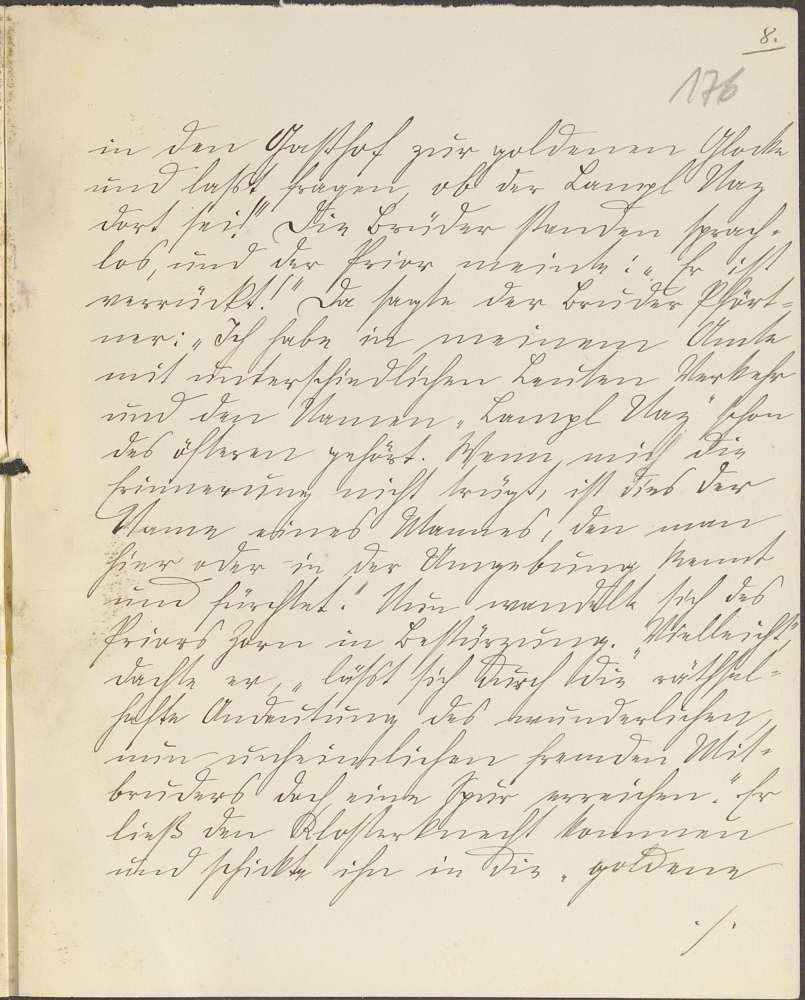 8.
176
in den Gasthof zur goldenen Glocke
und lasst fragen, ob der Lampl Naz
dort sei!" Die Brüder standen sprach-
los, und der Prior meinte: „Er ist
verrückt!" Da sagte der Bruder Pfört-
ner: „Ich habe in meinem Amte
mit unterschiedlichen Leuten Verkehr
und den Namen „Lampl Naz" schon
des öfteren gehört. Wenn mich die
Erinnerung nicht trügt, ist dies der
Name eines Mannes, den man
hier oder in der Umgebung kennt
und fürchtet." Nun wandelte sich des
Priors Zorn in Bestürzung. „Vielleicht,"
dachte er, „lässt sich durch die räthsel-
hafte Andeutung des wunderlichen,
nun unheimlichen fremden Mit-
bruders doch eine Spur erreichen." Er
ließ den Klosterknecht kommen
und schickte ihn in die „goldene
./.